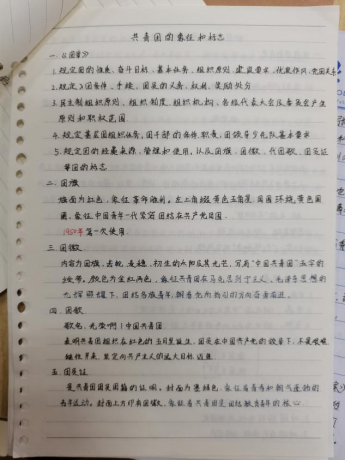 共青团的象征和标志
一. 以团章分
1. 规定团的性质、奋斗目标、基本任务、组织原则、建设要求、优良作风、党团关系
2. 规定入团条件、手续、团员义务、权利、奖励处分
3. 民主制组织原则、组织制度、组织机构、各级代表大会及委员会产生
原则和职权范围.
4. 规定基层团组织任务、团干部的条件、职责、团领导少先队基本要求
5. 规定团的经费来源、管理和使用. 以及团旗、团徽、代团歌、团员证
等团的标志
二. 团旗
旗面为红色, 象征革命胜利. 左上角缀黄色五角星, 周围环绕黄色圆
圈, 象征中国青年一代紧密团结在共产党周围.
1950年第一次使用
三. 团徽
内容为团旗、齿轮、麦穗、初生的太阳及其光芒, 写有"中国共青团"五字的
绶带. 颜色为金红两色, 象征共青团在马克思列宁主义、毛泽东思想的
光辉照耀下, 团结各族青年, 朝着党所指引的方向奋勇前进.
四. 团歌
歌名: 光荣啊!中国共青团
表明共青团组织在红色的五月里诞生, 团员在中国共产党的领导下, 不畏艰难
坚定向共产主义的远大目标迈进.
五. 团员证
是共青团团员团籍的证明. 封面为墨绿色, 象征着青春和朝气蓬勃的
青年运动. 封面上方印有团徽, 象征着共青团是团结教育青年的核心.